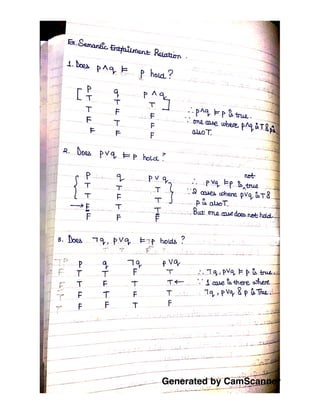 Ex. Semantic Entailment Relation.
1. Does p∧q ⊨ p hold?
p q p∧q
T T T
T F F
F T F
F F F
∴ p∧q ⊨ p is true.
∵ one case where p∧q is T & p is
also T.
2. Does p∨q ⊨ p hold?
p q p∨q
T T T
T F T
→ F T T
F F F
not
∴ p∨q ⊨ p is true
∵ 2 cases where p∨q is T &
p is also T.
But one case does not hold.
3. Does ¬q, p∨q ⊨ p holds?
¬p p q ¬q p∨q
F T T F T
F T F T T ←
T F T F T
T F F T F
∴ ¬q, p∨q ⊨ p is true.
∵ 1 case is there where
¬q, p∨q & p is True.
Generated by CamScanner